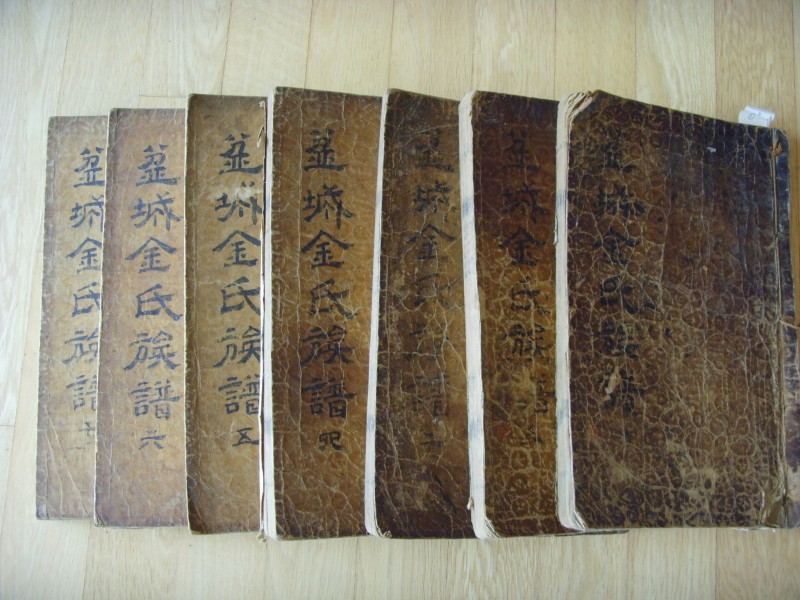 盆城金氏族譜
盆城金氏族譜 六
盆城金氏族譜 五
盆城金氏族譜 四
盆城金氏族譜
盆城金氏族譜
盆城金氏族譜